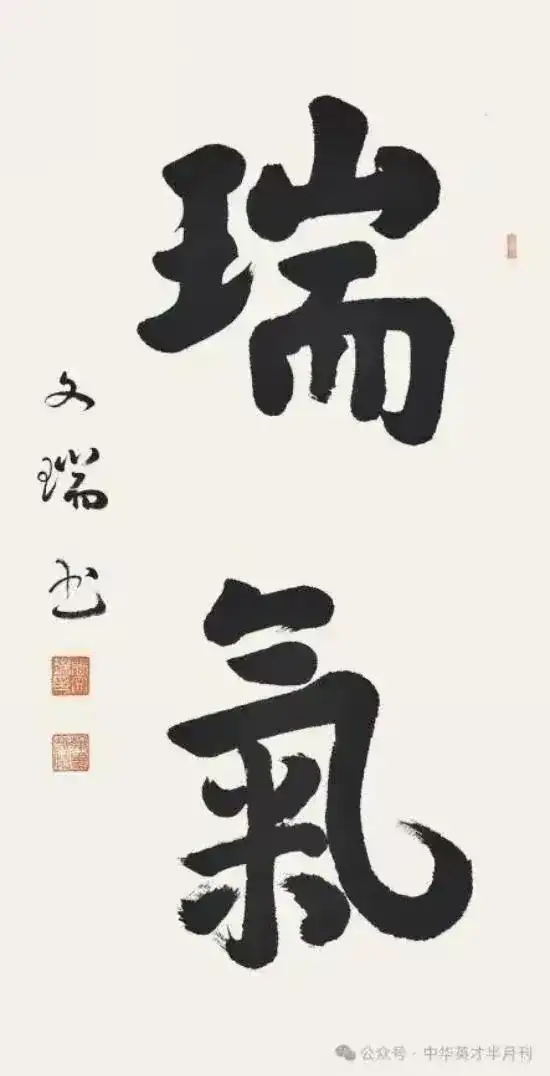 瑞氣
文瑞书
公众号·中华英才半月刊